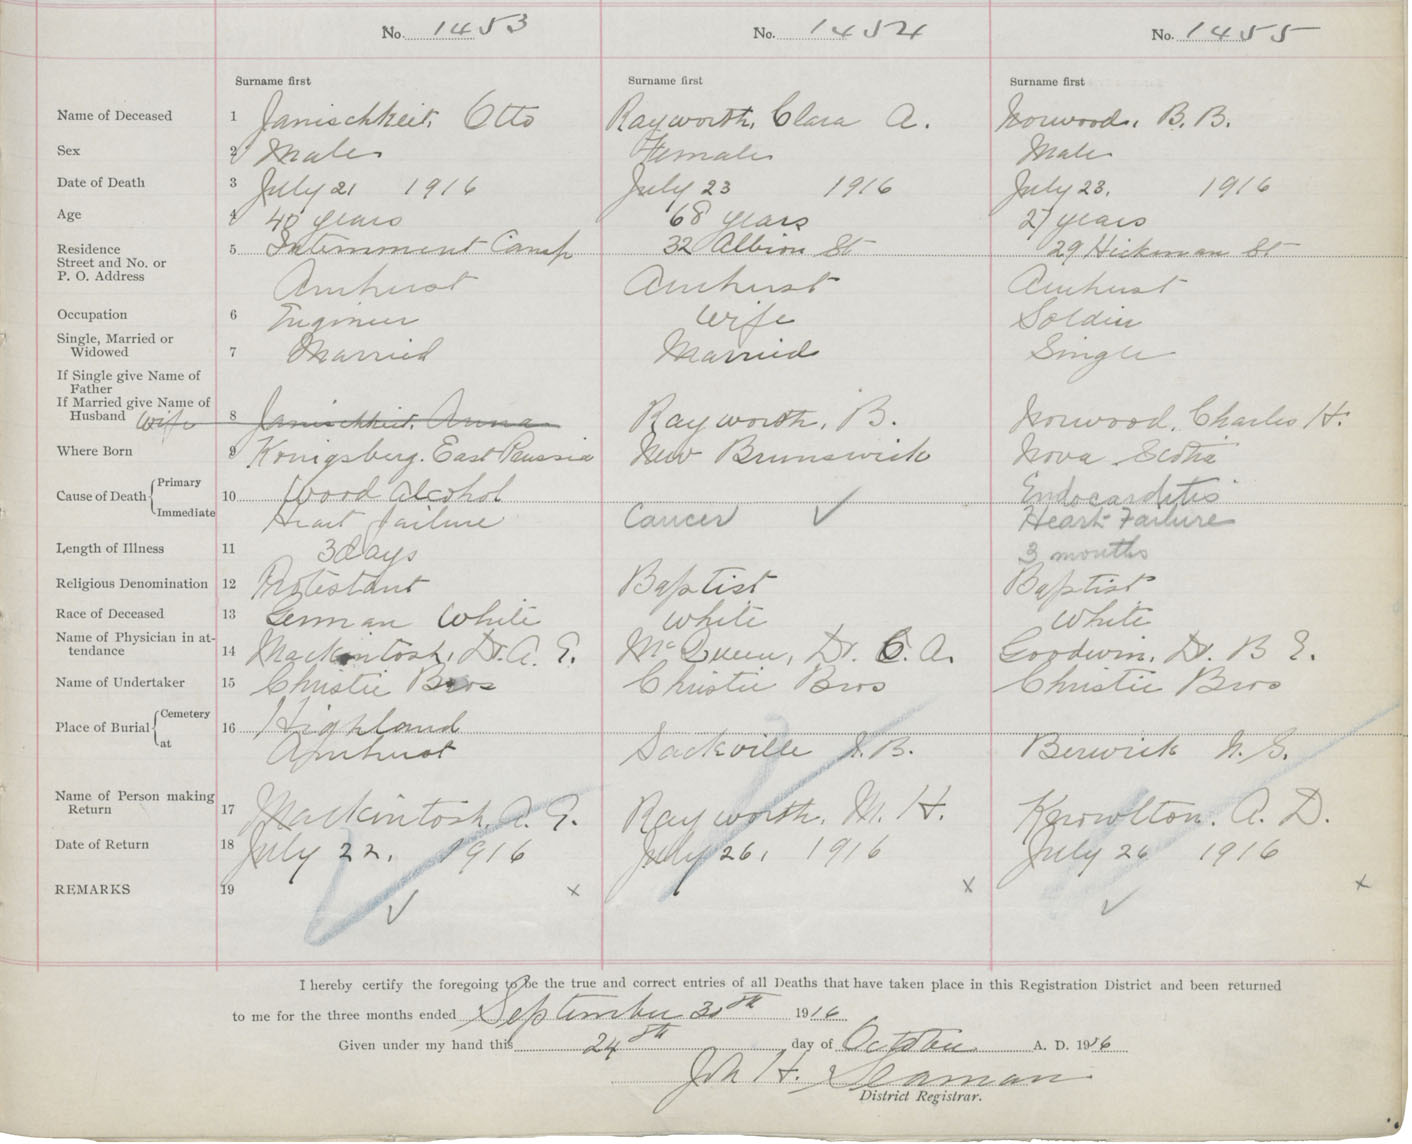 No. 1453 No. 1454 No. 1455
Surname first Surname first Surname first
Name of Deceased 1 Janischkeit, Otto Rayworth, Clara A. Norwood, B. B.
Sex 2 Male Female Male
Date of Death 3 July 21 1916 July 23 1916 July 23, 1916
Age 4 40 years 68 years 27 years
Residence 5 Internment Camp 32 Albion St 29 Hickman St
Street and No. or
P. O. Address Amherst Amherst Amherst
Occupation 6 Engineer Wife Soldier
Single, Married or
Widowed 7 Married Married Single
If Single give Name of
Father
If Married give Name of
Husband Wife 8 Janischkeit, Anna Rayworth, B. Norwood, Charles H.
Where Born 9 Konigsberg. East Prussia New Brunswick Nova Scotia
Cause of Death Primary 10 Wood Alcohol Endocarditis
Immediate Heart Failure Cancer ✓ Heart Failure
Length of Illness 11 3 days 3 months
Religious Denomination 12 Protestant Baptist Baptist
Race of Deceased 13 German White White White
Name of Physician in at-
tendance 14 Mackintosh, Dr. A. E. McQueen, Dr. C. A. Goodwin, Dr. B E.
Name of Undertaker 15 Christie Bros Christie Bros Christie Bros
Place of Burial Cemetery 16 Highland
at Amherst Sackville N. B. Berwick N. S.
Name of Person making
Return 17 Mackintosh, A. E. Rayworth, M. H. Knowlton. A. D.
Date of Return 18 July 22, 1916 July 26, 1916 July 26 1916
REMARKS 19 ✓ x x ✓ x
I hereby certify the foregoing to be the true and correct entries of all Deaths that have taken place in this Registration District and been returned
to me for the three months ended September 30th 1916
Given under my hand this 24th day of October A. D. 1916
Jn H. Seaman
District Registrar.